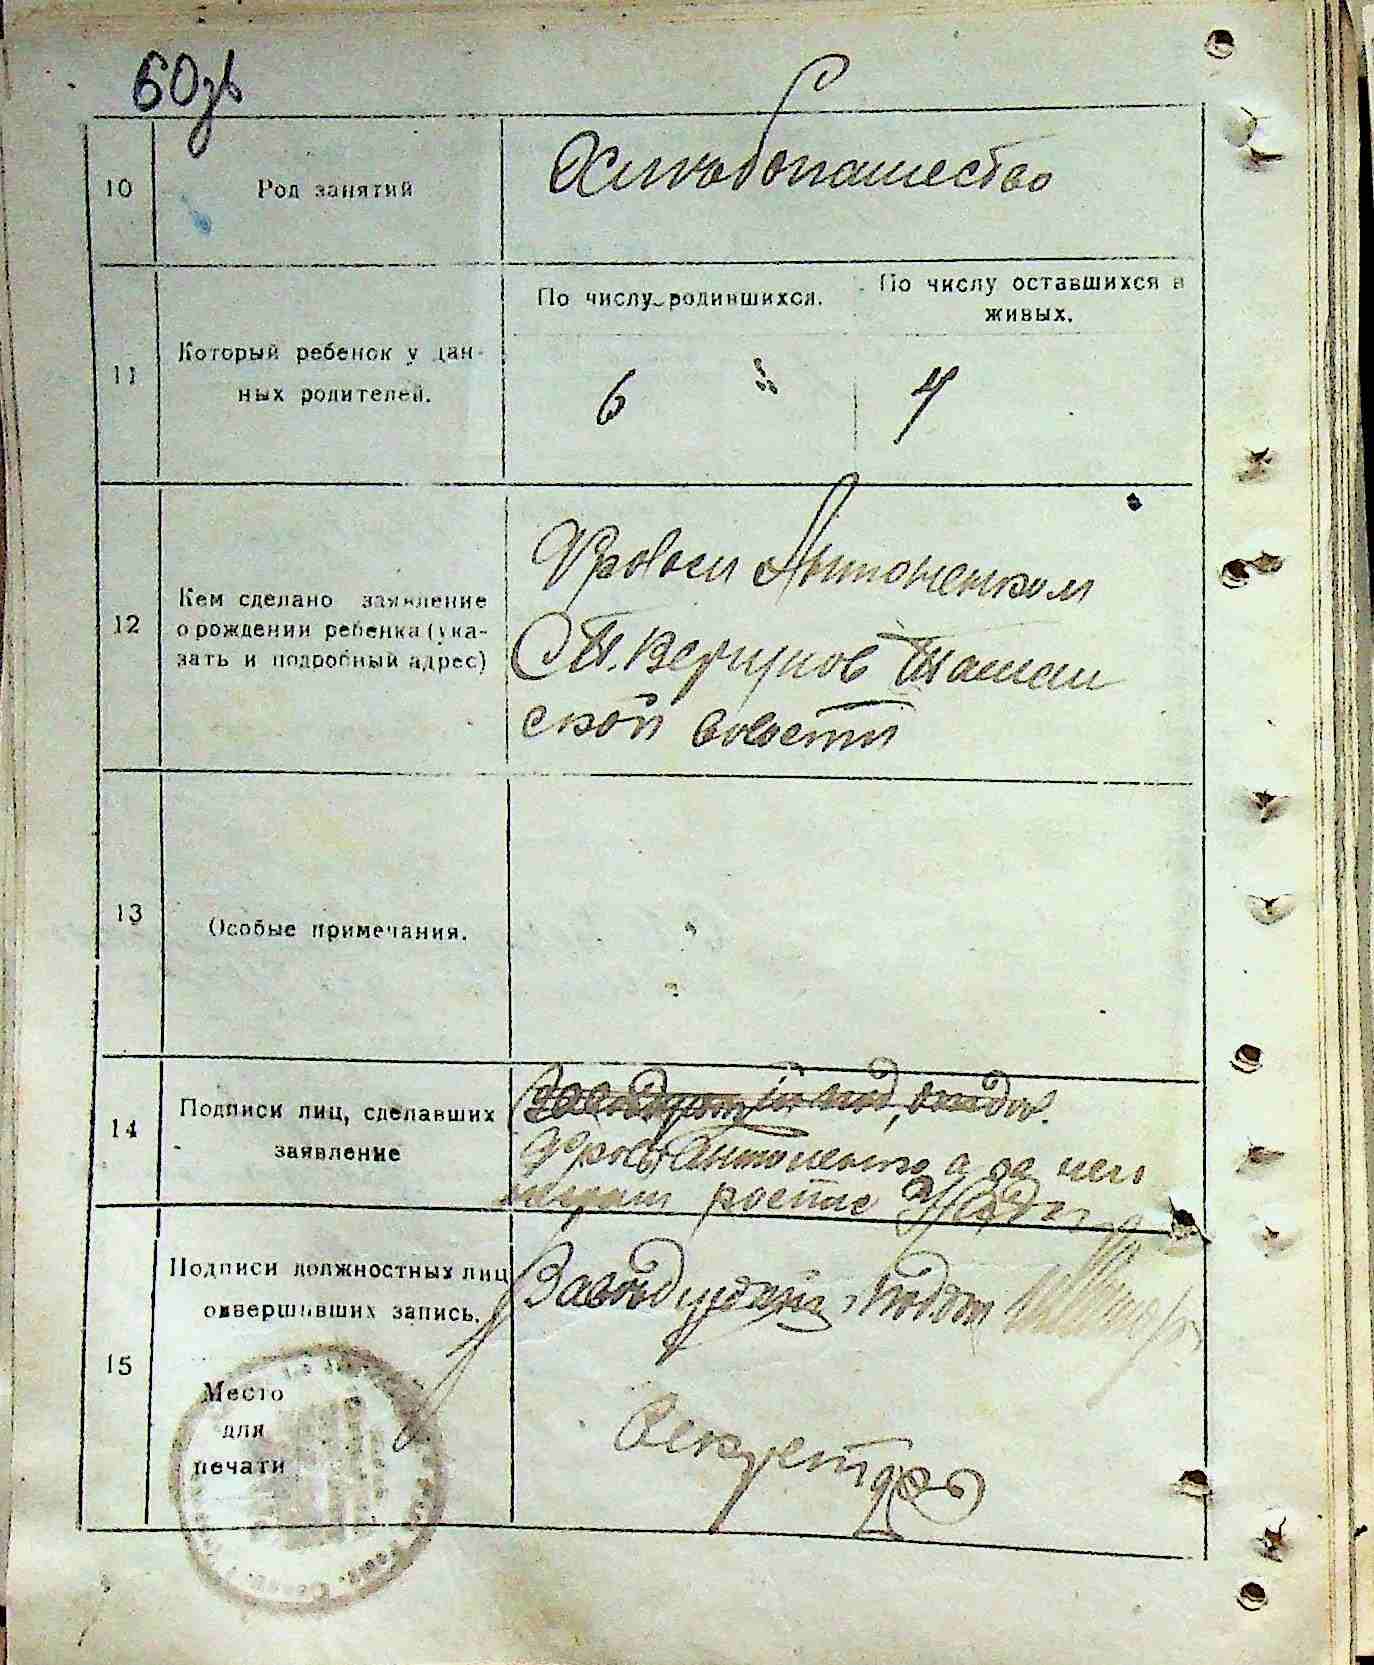 60 зв
10
Род занятий
Хлѣбопашество
11
Который ребенок у дан-
ных родителей.
По числу родившихся.
По числу оставшихся в
живых.
6 "
4
12
Кем сделано заявление
о рождении ребенка (ука-
зать и подробный адрес)
Антоненком
Ст.
ской волости
13
Особые примечания.
14
Подписи лиц, сделавших
заявление
Антоненко а за нег
роспис
15
Подписи должностных лиц
совершивших запись.
Место
для
печати
Заведующий подот
Секретарь